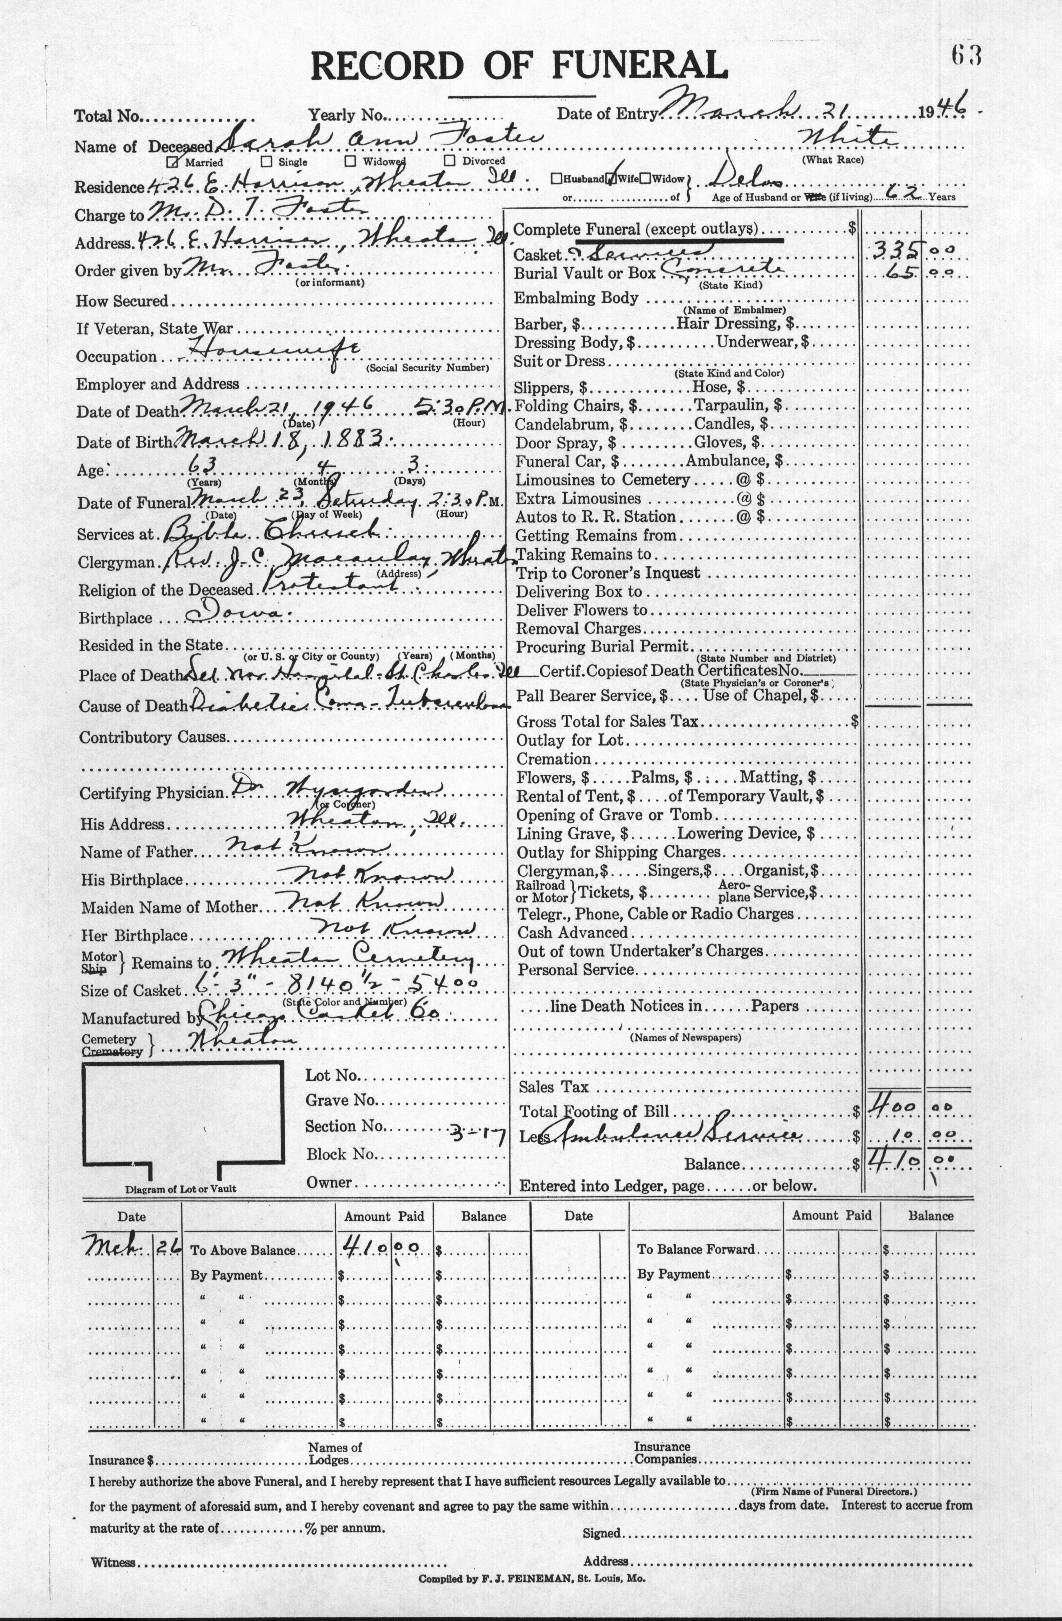 63
RECORD OF FUNERAL
Total No. Yearly No. Date of Entry March 21 1946.
Name of Deceased Sarah Ann Foster White
☑ Married ☐ Single ☐ Widowed ☐ Divorced (What Race)
Residence 426 E. Harrison, Wheaton Ill. ☐ Husband ☑ Wife ☐ Widow } Delos
or of } Age of Husband or Wife (if living) 62 Years
Charge to Mr. D. T. Foster
Address 426 E. Harrison, Wheaton Ill
Order given by Mr. Foster.
(or informant)
How Secured
If Veteran, State War
Occupation Housewife
(Social Security Number)
Employer and Address
Date of Death March 21, 1946 5:30 P.M.
(Date) (Hour)
Date of Birth March 18, 1883.
Age: 63 4 3.
(Years) (Months) (Days)
Date of Funeral March 23, Saturday 2:30 P.M.
(Date) (Day of Week) (Hour)
Services at Bible Church.
Clergyman Rev. J. C. Macaulay, Wheaton
(Address)
Religion of the Deceased Protestant.
Birthplace Iowa.
Resided in the State
(or U. S. or City or County) (Years) (Months)
Place of Death Del Nor Hospital - St. Charles Ill
Cause of Death Diabetic Coma - Tuberculosis
Contributory Causes
Certifying Physician Dr.
(or Coroner)
His Address Wheaton, Ill.
Name of Father Not Known
His Birthplace Not Known
Maiden Name of Mother Not Known
Her Birthplace Not Known
Motor
Ship } Remains to Wheaton Cemetery
Size of Casket 6'-3" - 8140 1/2 - 5400
(State Color and Number)
Manufactured by Chicago Casket Co.
Cemetery
Crematory } Wheaton
Lot No.
Grave No.
Section No. 3-17
Block No.
Owner
Diagram of Lot or Vault
Complete Funeral (except outlays) $
Casket & Services 335 00
Burial Vault or Box Concrete 65 00
(State Kind)
Embalming Body
(Name of Embalmer)
Barber, $ Hair Dressing, $
Dressing Body, $ Underwear, $
Suit or Dress
(State Kind and Color)
Slippers, $ Hose, $
Folding Chairs, $ Tarpaulin, $
Candelabrum, $ Candles, $
Door Spray, $ Gloves, $
Funeral Car, $ Ambulance, $
Limousines to Cemetery @ $
Extra Limousines @ $
Autos to R. R. Station @ $
Getting Remains from
Taking Remains to
Trip to Coroner's Inquest
Delivering Box to
Deliver Flowers to
Removal Charges
Procuring Burial Permit
(State Number and District)
Certif. Copies of Death Certificates No.
(State Physician's or Coroner's)
Pall Bearer Service, $ Use of Chapel, $
Gross Total for Sales Tax $
Outlay for Lot
Cremation
Flowers, $ Palms, $ Matting, $
Rental of Tent, $ of Temporary Vault, $
Opening of Grave or Tomb
Lining Grave, $ Lowering Device, $
Outlay for Shipping Charges
Clergyman, $ Singers, $ Organist, $
Railroad
or Motor } Tickets, $ Aero-
plane Service, $
Telegr., Phone, Cable or Radio Charges
Cash Advanced
Out of town Undertaker's Charges
Personal Service
line Death Notices in Papers
(Names of Newspapers)
Sales Tax
Total Footing of Bill $ 400 00
Less Ambulance Service $ 10 00
Balance $ 410 00
Entered into Ledger, page or below.
Date Amount Paid Balance Date Amount Paid Balance
Mch. 26 To Above Balance 410 00 $ To Balance Forward $
By Payment $ $ By Payment $ $
“ “ $ $ “ “ $ $
“ “ $ $ “ “ $ $
“ “ $ $ “ “ $ $
“ “ $ $ “ “ $ $
“ “ $ $ “ “ $ $
“ “ $ $ “ “ $ $
Insurance $ Names of Lodges Insurance Companies
I hereby authorize the above Funeral, and I hereby represent that I have sufficient resources Legally available to
(Firm Name of Funeral Directors.)
for the payment of aforesaid sum, and I hereby covenant and agree to pay the same within days from date. Interest to accrue from
maturity at the rate of % per annum.
Signed
Witness Address
Compiled by F. J. FEINEMAN, St. Louis, Mo.